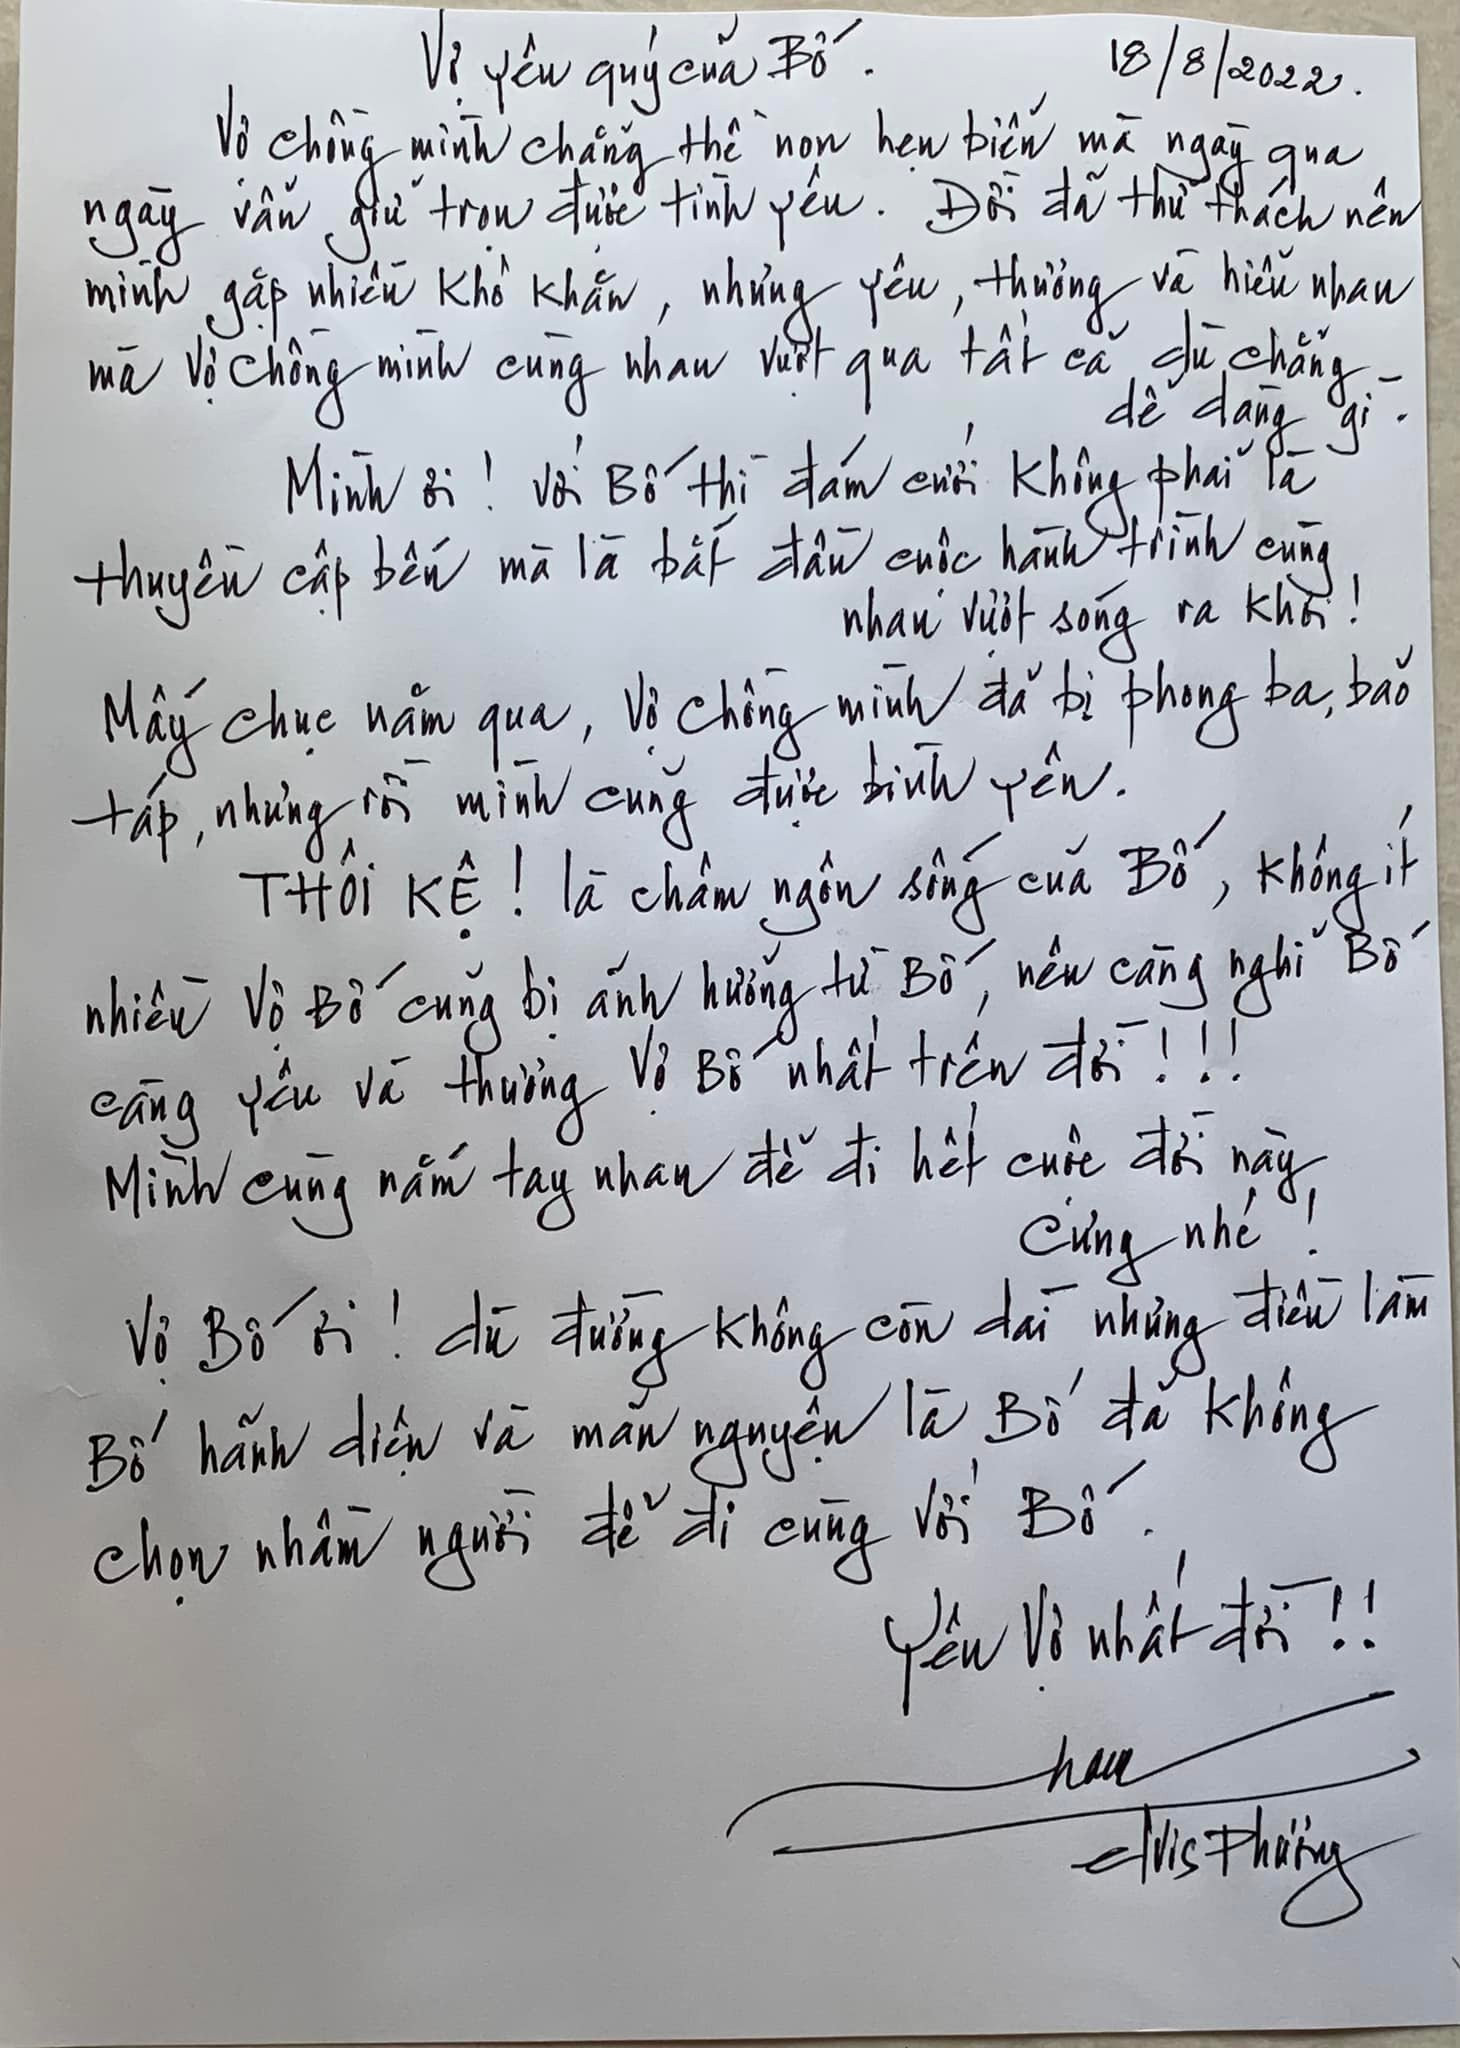 Vợ yêu quý của Bố. 18/8/2022.
Vợ chồng mình chẳng thề non hẹn biển mà ngày qua
ngày vẫn giữ trọn được tình yêu. Đời đã thử thách nên
mình gặp nhiều khó khăn, nhưng yêu, thương và hiểu nhau
mà vợ chồng mình cùng nhau vượt qua tất cả dù chẳng
dễ dàng gì.
Mình ơi! với Bố thì đám cưới không phải là
thuyền cập bến mà là bắt đầu cuộc hành trình cùng
nhau vượt sóng ra khơi!
Mấy chục năm qua, vợ chồng mình đã bị phong ba, bão
táp, nhưng rồi mình cũng được bình yên.
THÔI KỆ! là châm ngôn sống của Bố, không ít
nhiều vợ Bố cũng bị ảnh hưởng từ Bố, nên càng nghĩ Bố
càng yêu và thương vợ Bố nhất trên đời!!!
Mình cùng nắm tay nhau để đi hết cuộc đời này
cưng nhé!
Vợ Bố ơi! dù đường không còn dài nhưng điều làm
Bố hãnh diện và mãn nguyện là Bố đã không
chọn nhầm người để đi cùng với Bố.
Yêu Vợ nhất đời!!
Elvis Phương